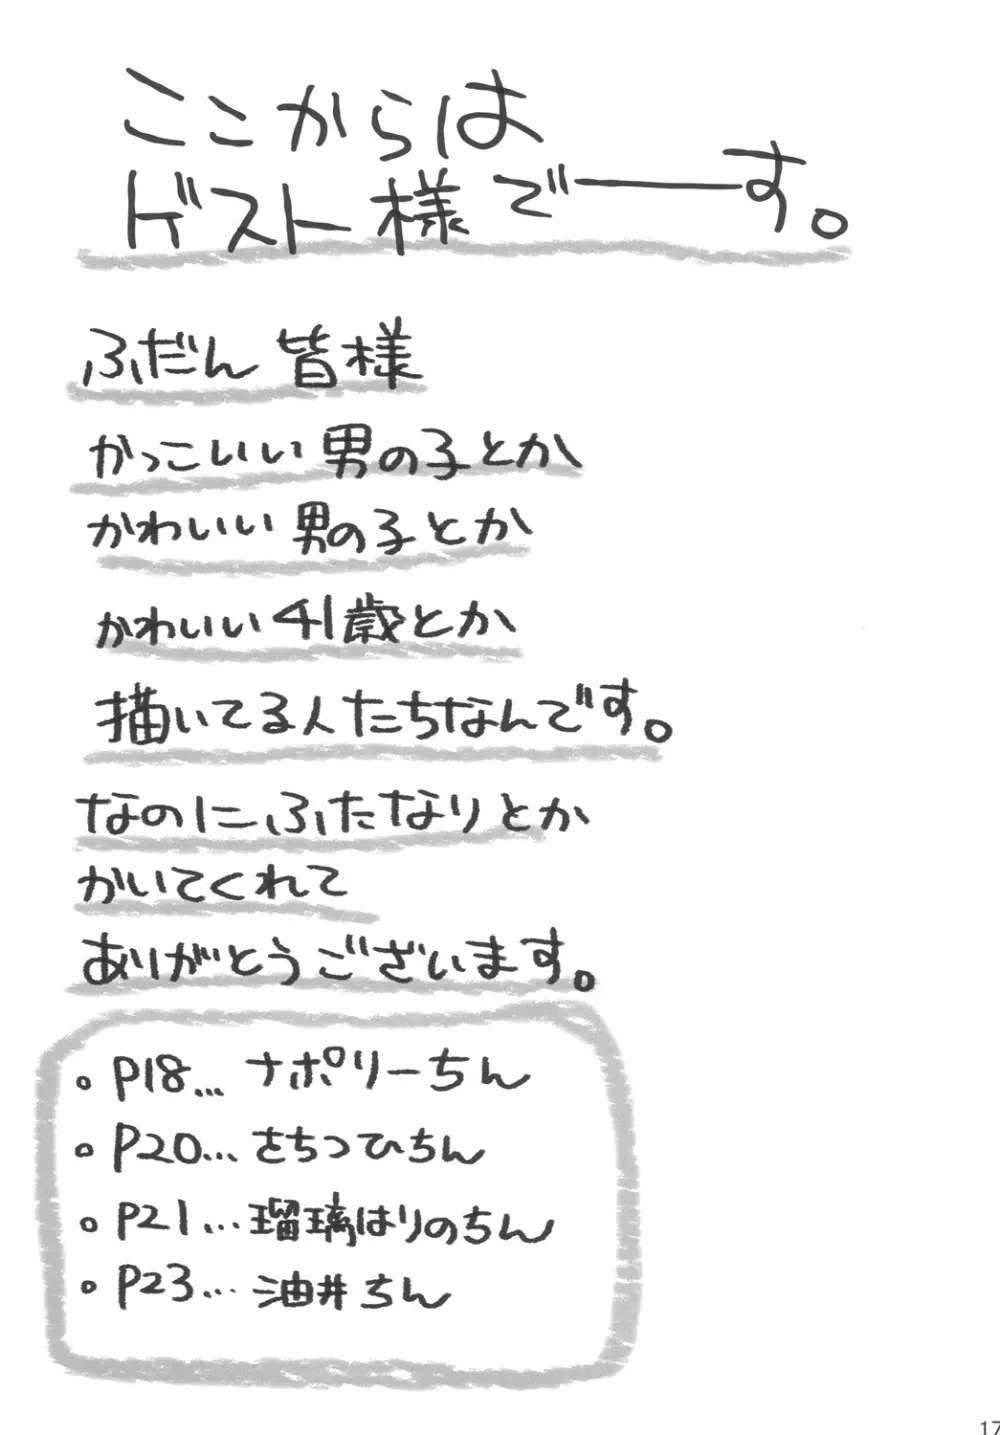 ここからは
ゲスト様でーーす。
ふだん 皆様
かっこいい男の子とか
かわいい男の子とか
かわいい41歳とか
描いてる人たちなんです。
なのにふたなりとか
かいてくれて
ありがとうございます。
。P18... ナポリーちん
。P20... さちつひちん
。P21... 瑠璃はりのちん
。P23... 油井ちん
17